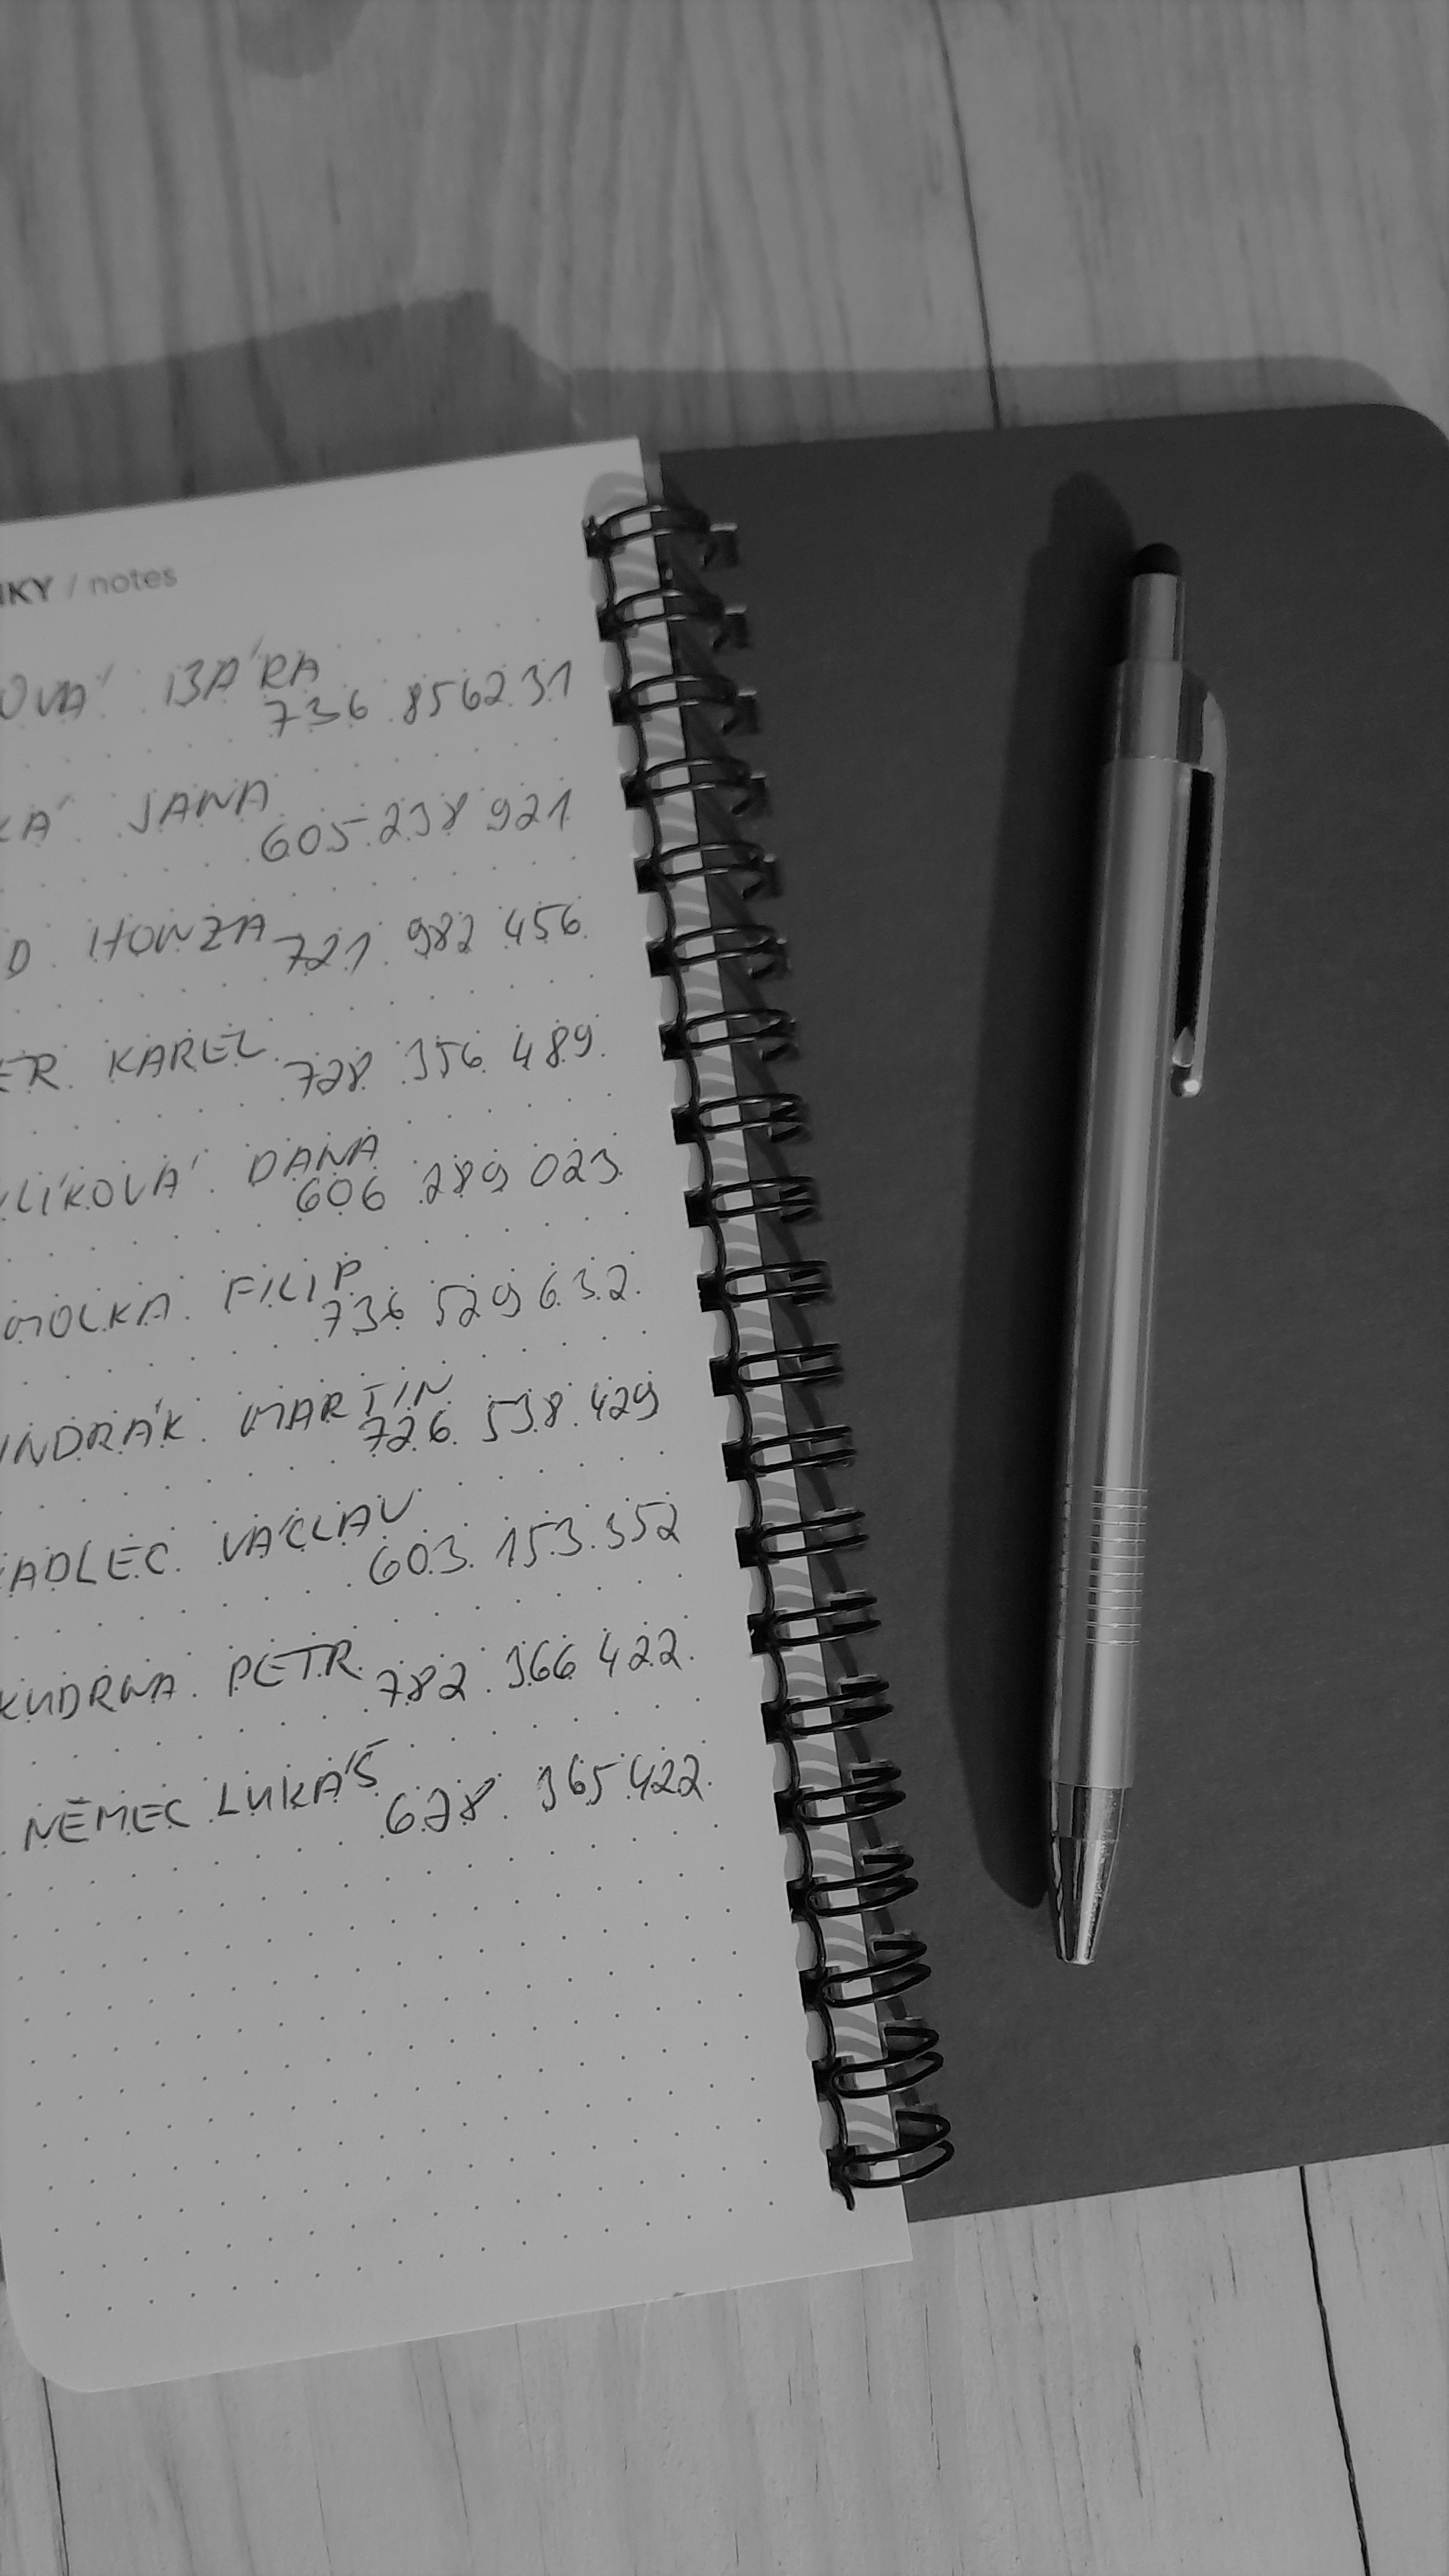 NKY / notes
OVÁ BÁRA
736 856231
KÁ JANA
605 238 921
D HONZA 721 982 456
ER KAREL 728 356 489
LÍKOVÁ DANA
606 289 023
MOLKA FILIP
736 529 632
INDRÁK MARTIN
726 538 429
ADLEC VÁCLAV
603 153 352
KUDRNA PETR 782 366 422
NĚMEC LUKÁŠ 678 365 422